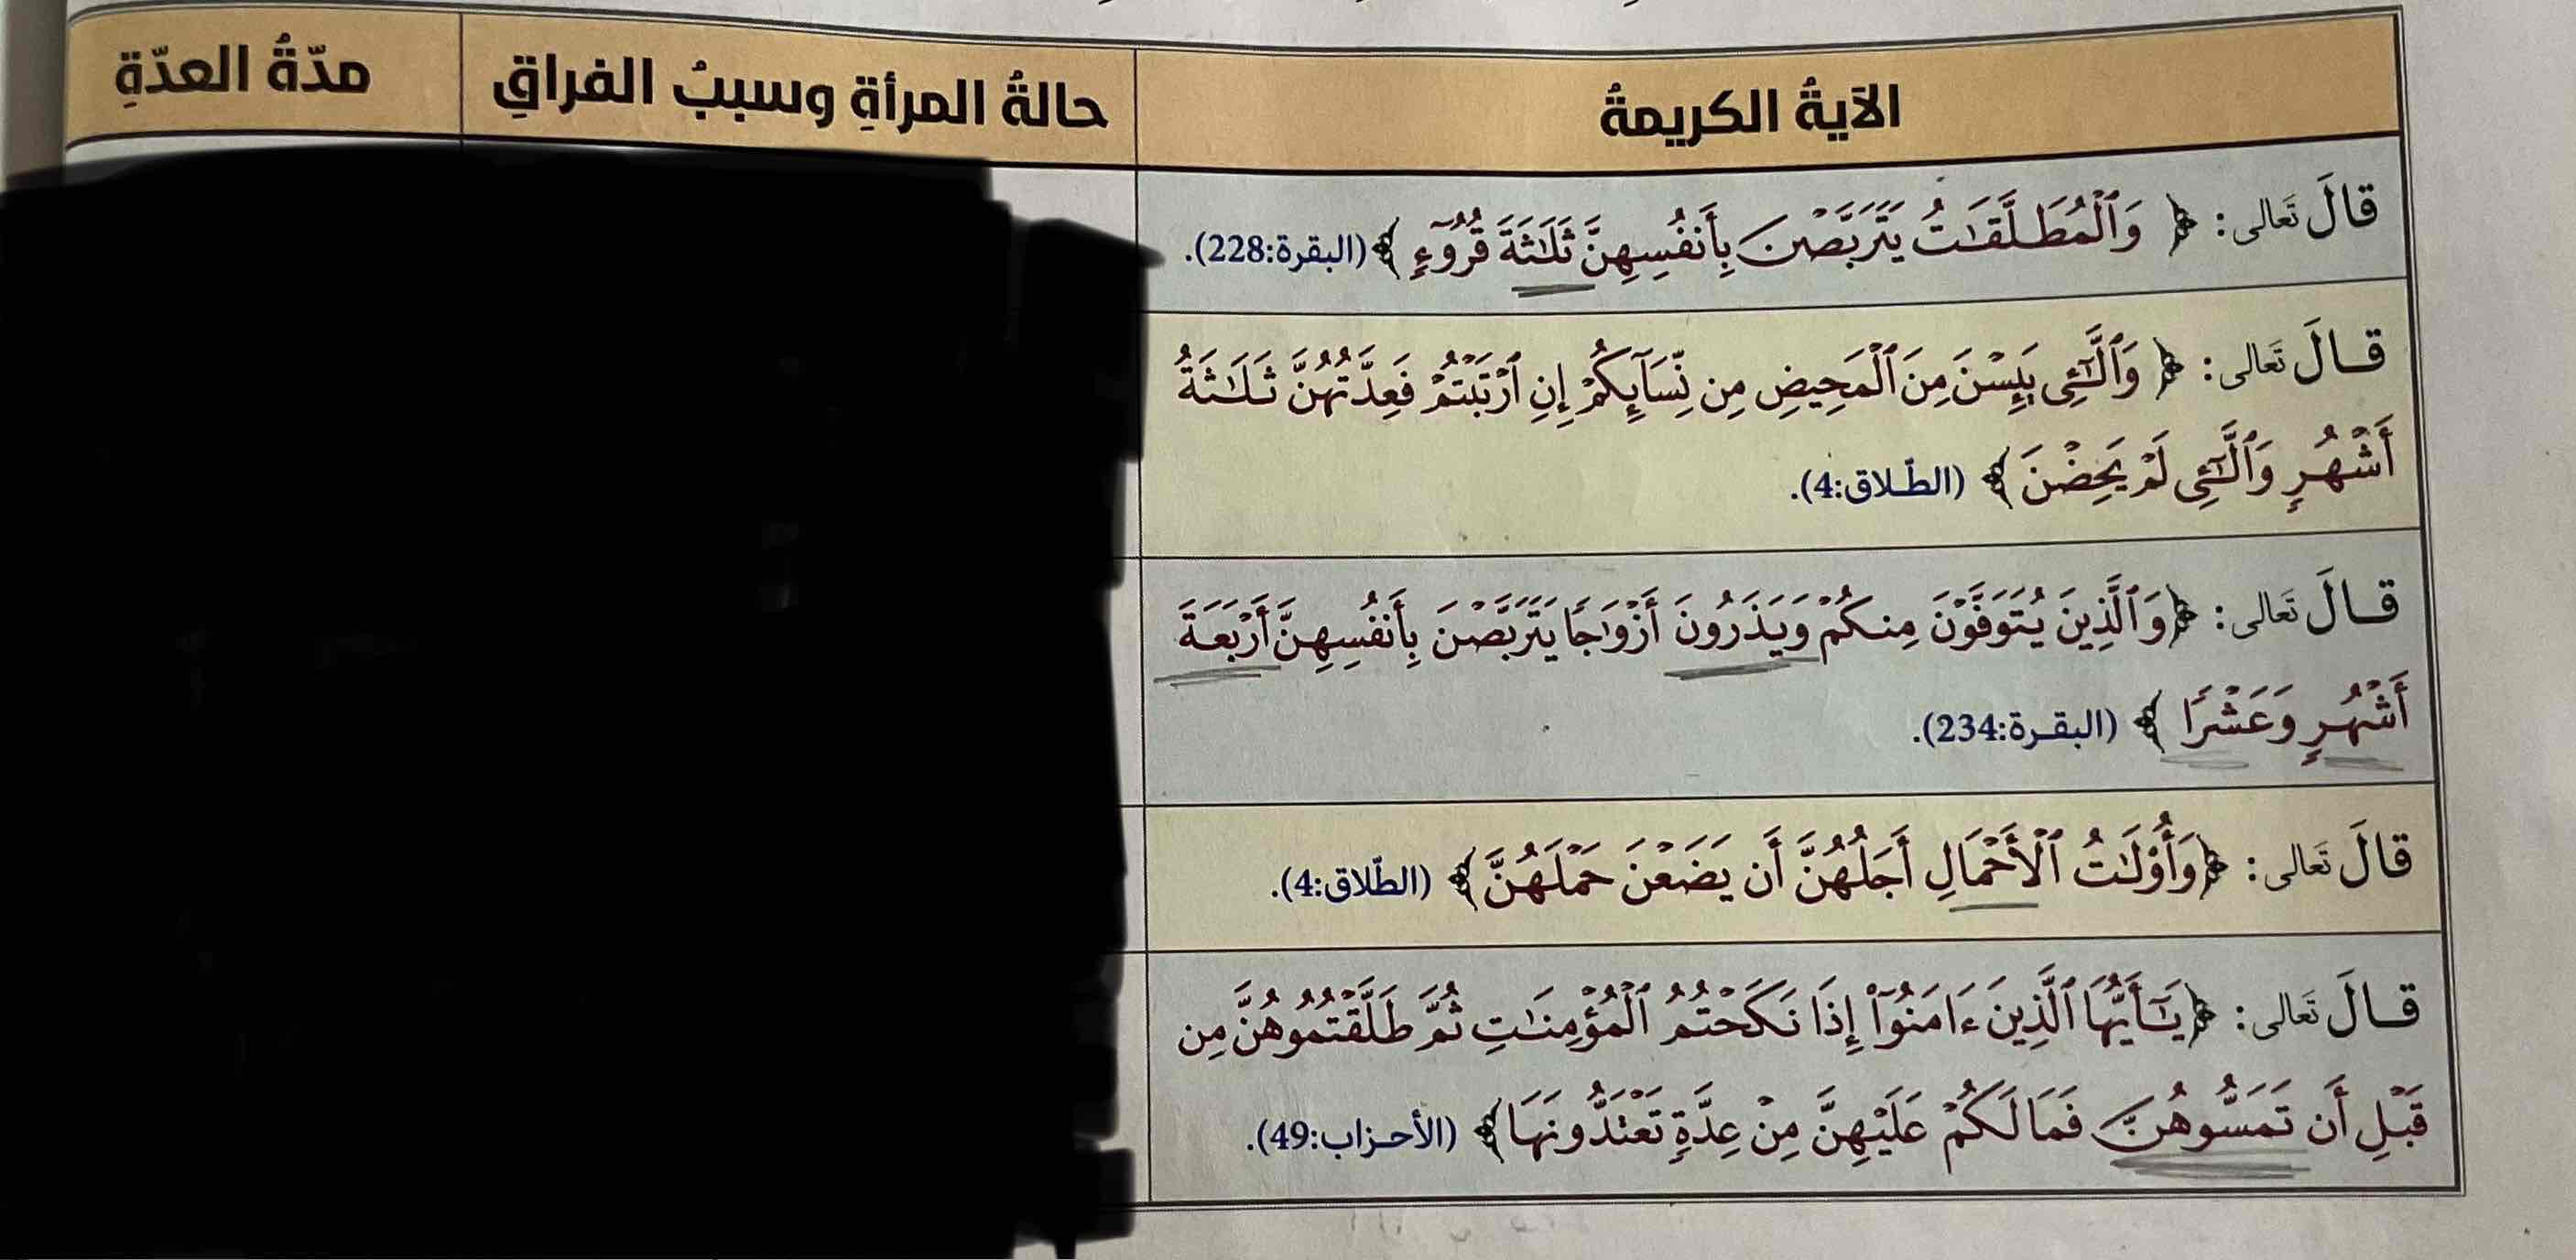 الآيةُ الكريمةُ
حالةُ المرأةِ وسببُ الفراقِ
مدّةُ العدّةِ
قالَ تَعالى: ﴿ وَٱلْمُطَلَّقَٰتُ يَتَرَبَّصْنَ بِأَنفُسِهِنَّ ثَلَٰثَةَ قُرُوٓءٍ ﴾ (البقرة:228).
قالَ تَعالى: ﴿ وَٱلَّٰٓـِٔى يَئِسْنَ مِنَ ٱلْمَحِيضِ مِن نِّسَآئِكُمْ إِنِ ٱرْتَبْتُمْ فَعِدَّتُهُنَّ ثَلَٰثَةُ
أَشْهُرٍ وَٱلَّٰٓـِٔى لَمْ يَحِضْنَ ﴾ (الطّلاق:4).
قالَ تَعالى: ﴿وَٱلَّذِينَ يُتَوَفَّوْنَ مِنكُمْ وَيَذَرُونَ أَزْوَٰجًا يَتَرَبَّصْنَ بِأَنفُسِهِنَّ أَرْبَعَةَ
أَشْهُرٍ وَعَشْرًا ﴾ (البقرة:234).
قالَ تَعالى: ﴿وَأُوْلَٰتُ ٱلْأَحْمَالِ أَجَلُهُنَّ أَن يَضَعْنَ حَمْلَهُنَّ﴾ (الطّلاق:4).
قالَ تَعالى: ﴿يَٰٓأَيُّهَا ٱلَّذِينَ ءَامَنُوٓاْ إِذَا نَكَحْتُمُ ٱلْمُؤْمِنَٰتِ ثُمَّ طَلَّقْتُمُوهُنَّ مِن
قَبْلِ أَن تَمَسُّوهُنَّ فَمَا لَكُمْ عَلَيْهِنَّ مِنْ عِدَّةٍ تَعْتَدُّونَهَا﴾ (الأحزاب:49).